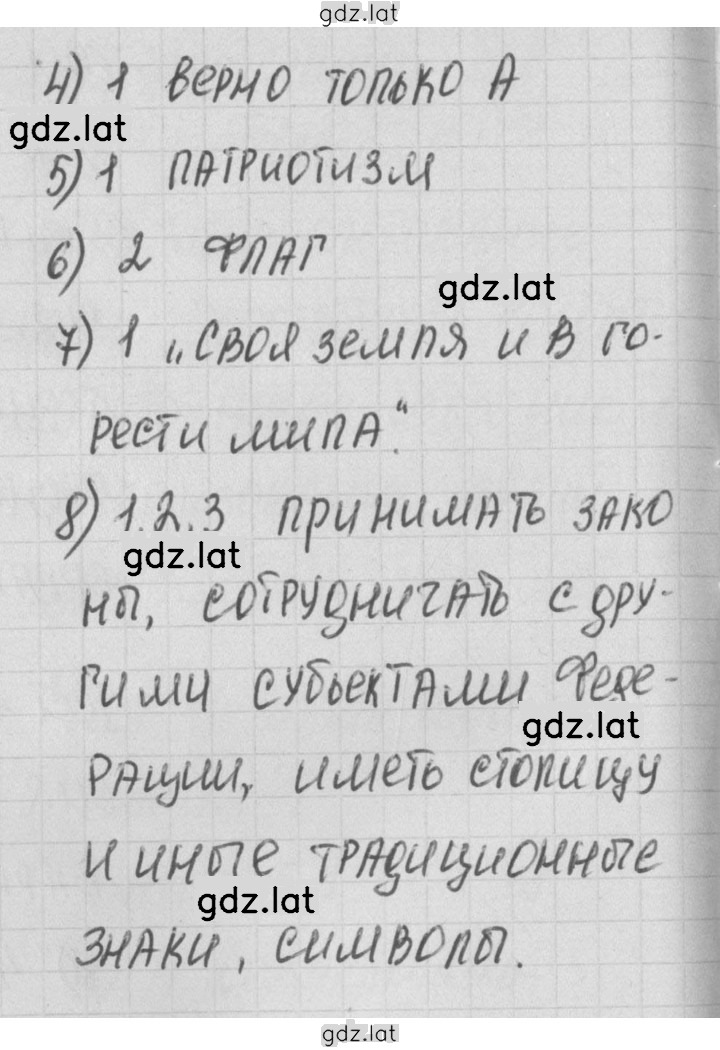 gdz.lat
4) 1 верно только А
gdz.lat
5) 1 патриотизм
6) 2 флаг
gdz.lat
7) 1 „Своя земля и в го-
рести мила“.
8) 1.2.3 принимать зако
gdz.lat
ны, сотрудничать с дру-
гими субъектами Феде-
gdz.lat
рации, иметь столицу
и иные традиционные
gdz.lat
знаки, символы.
gdz.lat